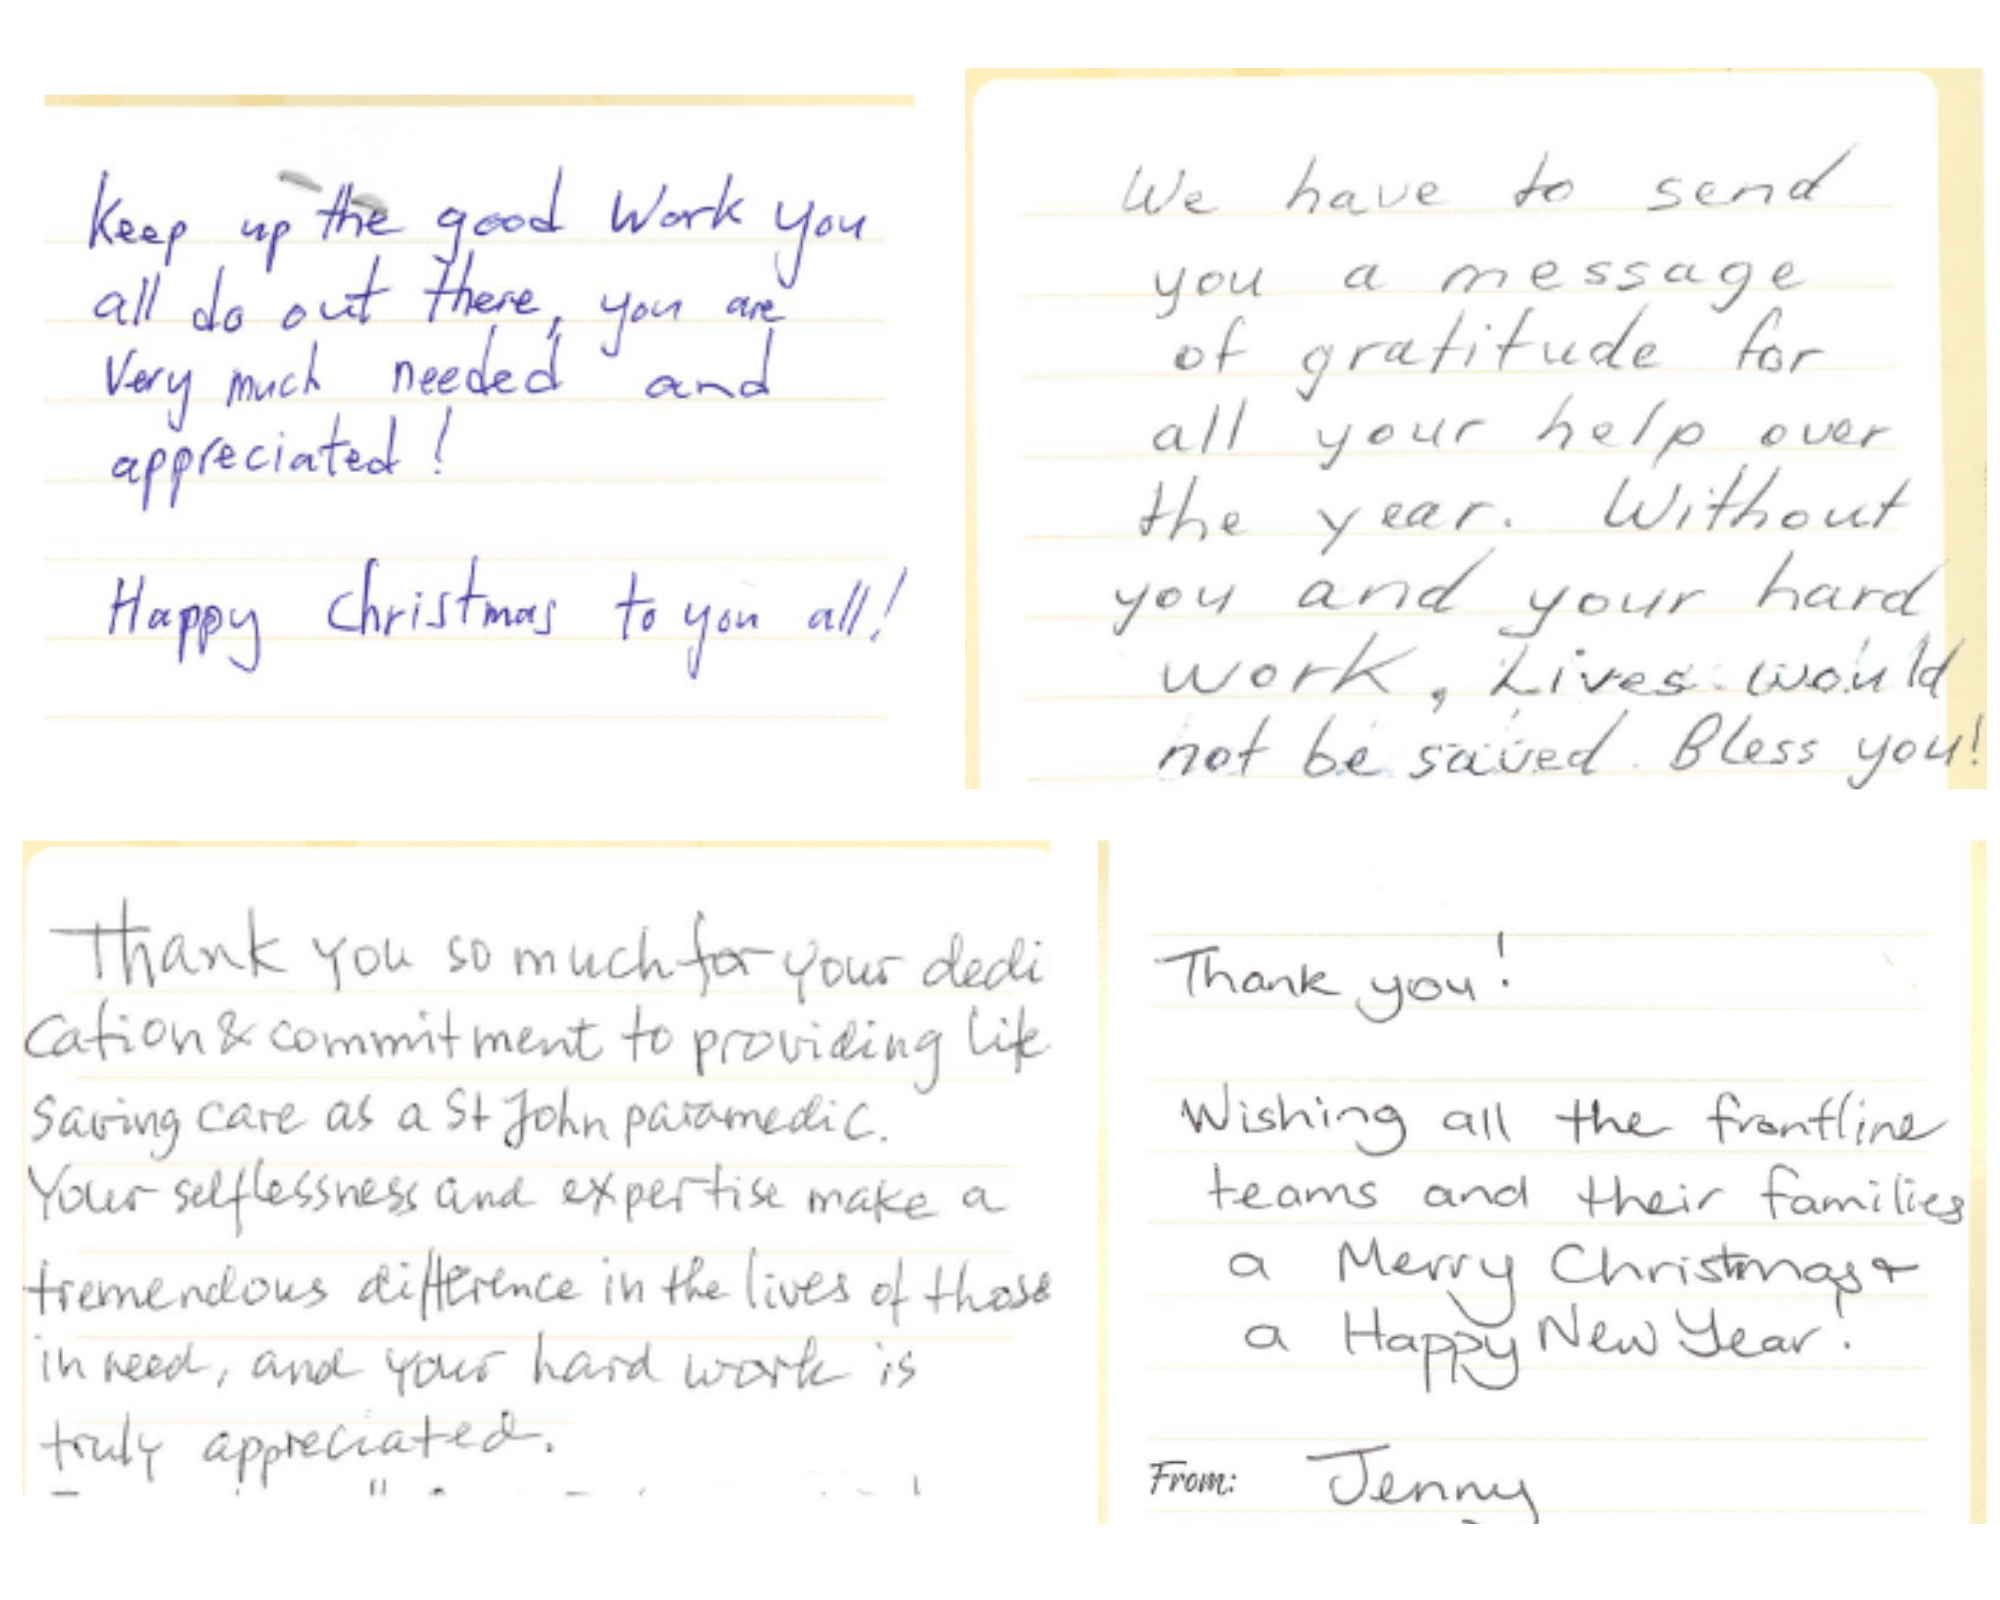 Keep up the good Work you
all do out there, you are
Very much needed and
appreciated!
Happy Christmas to you all!
We have to send
you a message
of gratitude for
all your help over
the year. Without
you and your hard
work, Lives would
not be saved. Bless you!
Thank you so much for your dedi
cation & commitment to providing life
saving care as a St John paramedic.
Your selflessness and expertise make a
tremendous difference in the lives of those
in need, and your hard work is
truly appreciated.
Thank you!
Wishing all the frontline
teams and their families
a Merry Christmas &
a Happy New Year!
From: Jenny